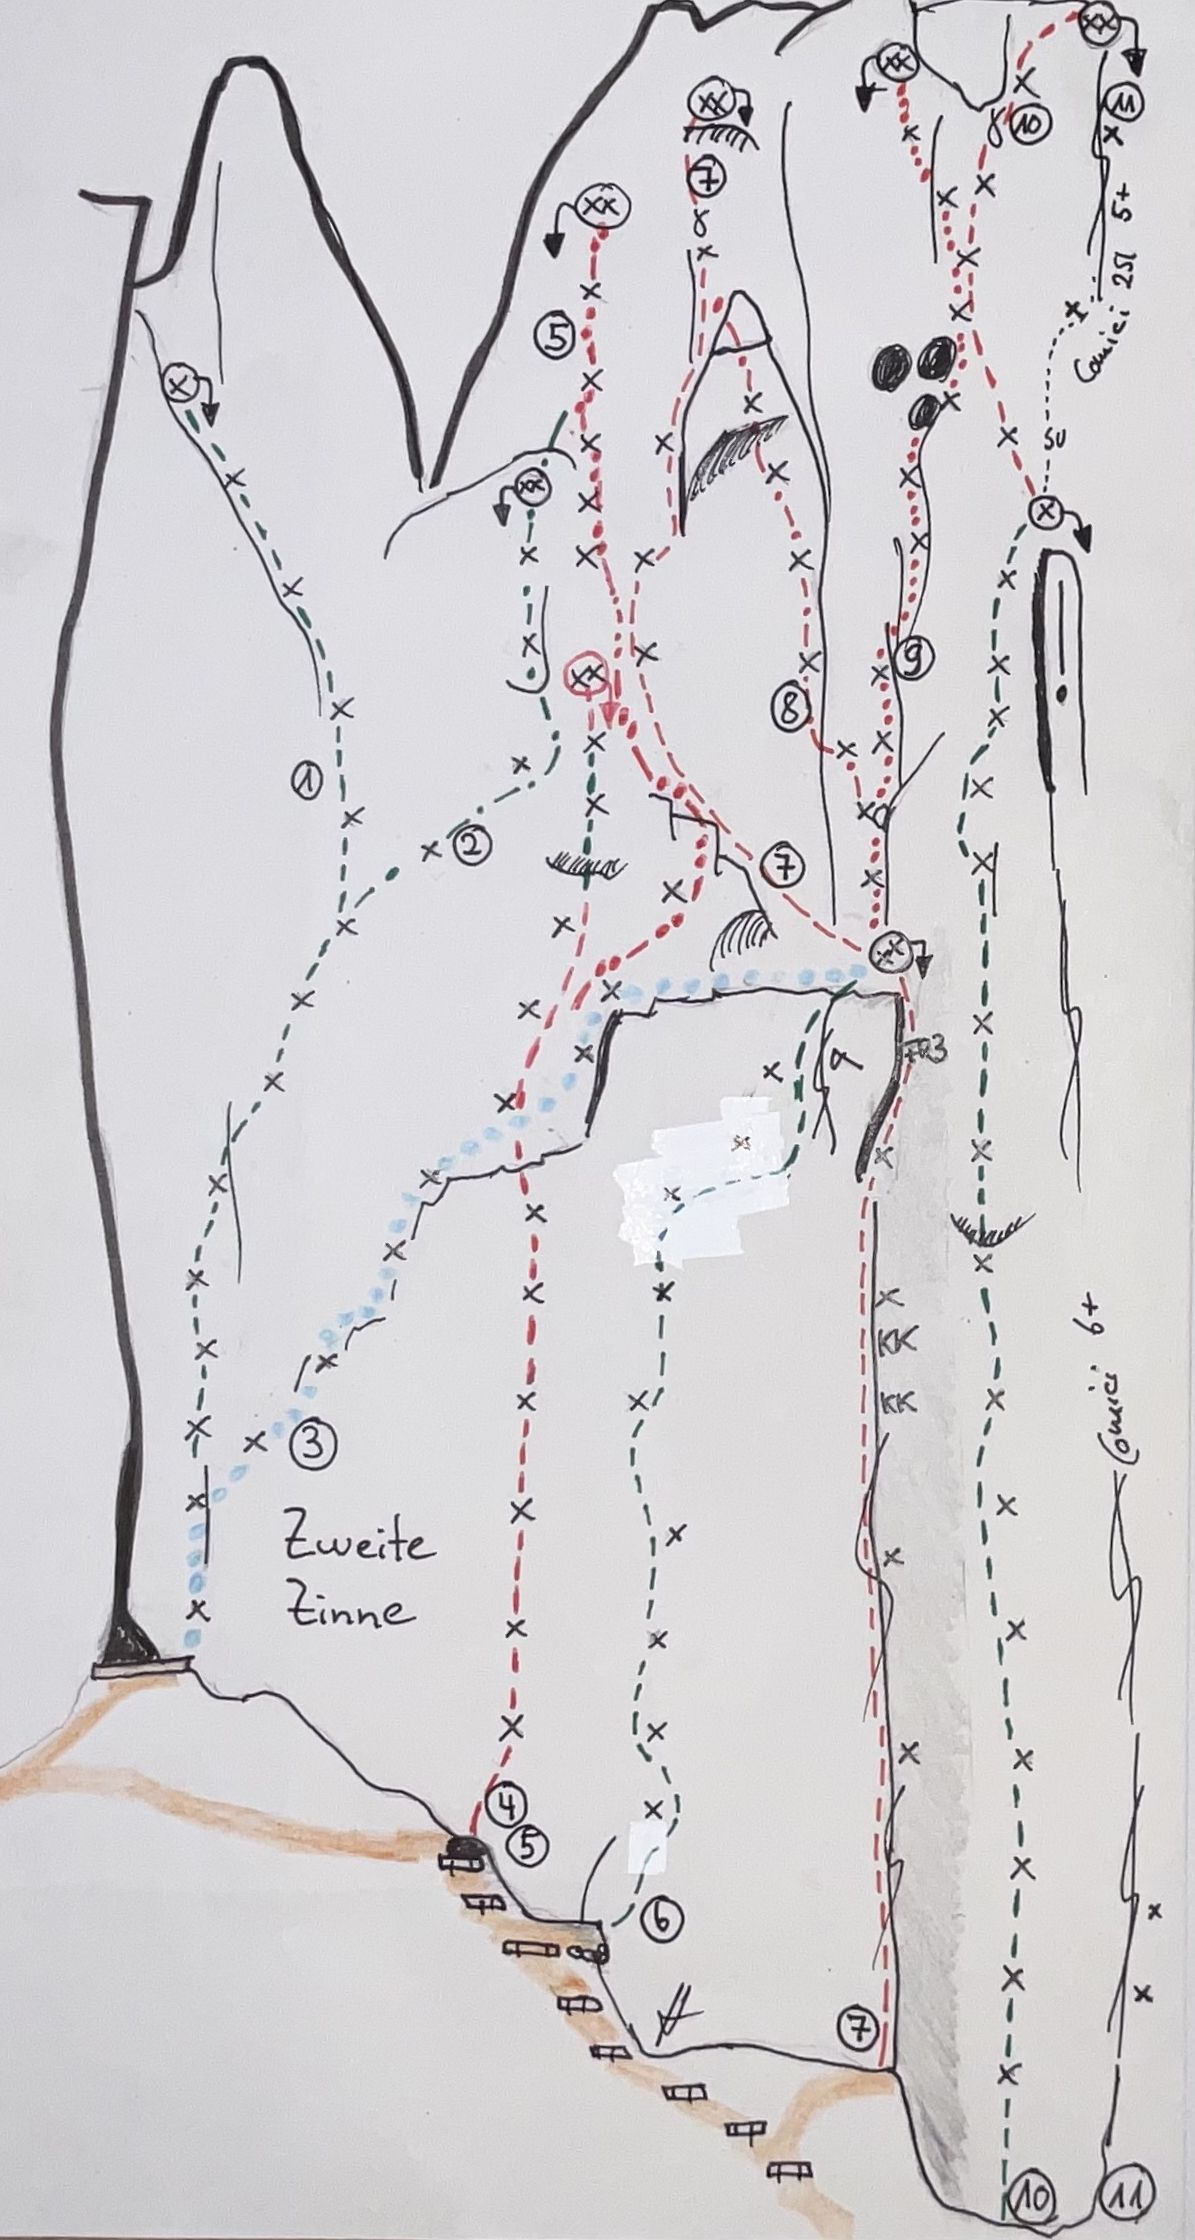 10
11
7
5
Comici 2Sl 5+
SU
9
8
1
2
7
FR3
Comici 6+
3
Zweite
Zinne
KK
KK
4
5
6
7
10
11